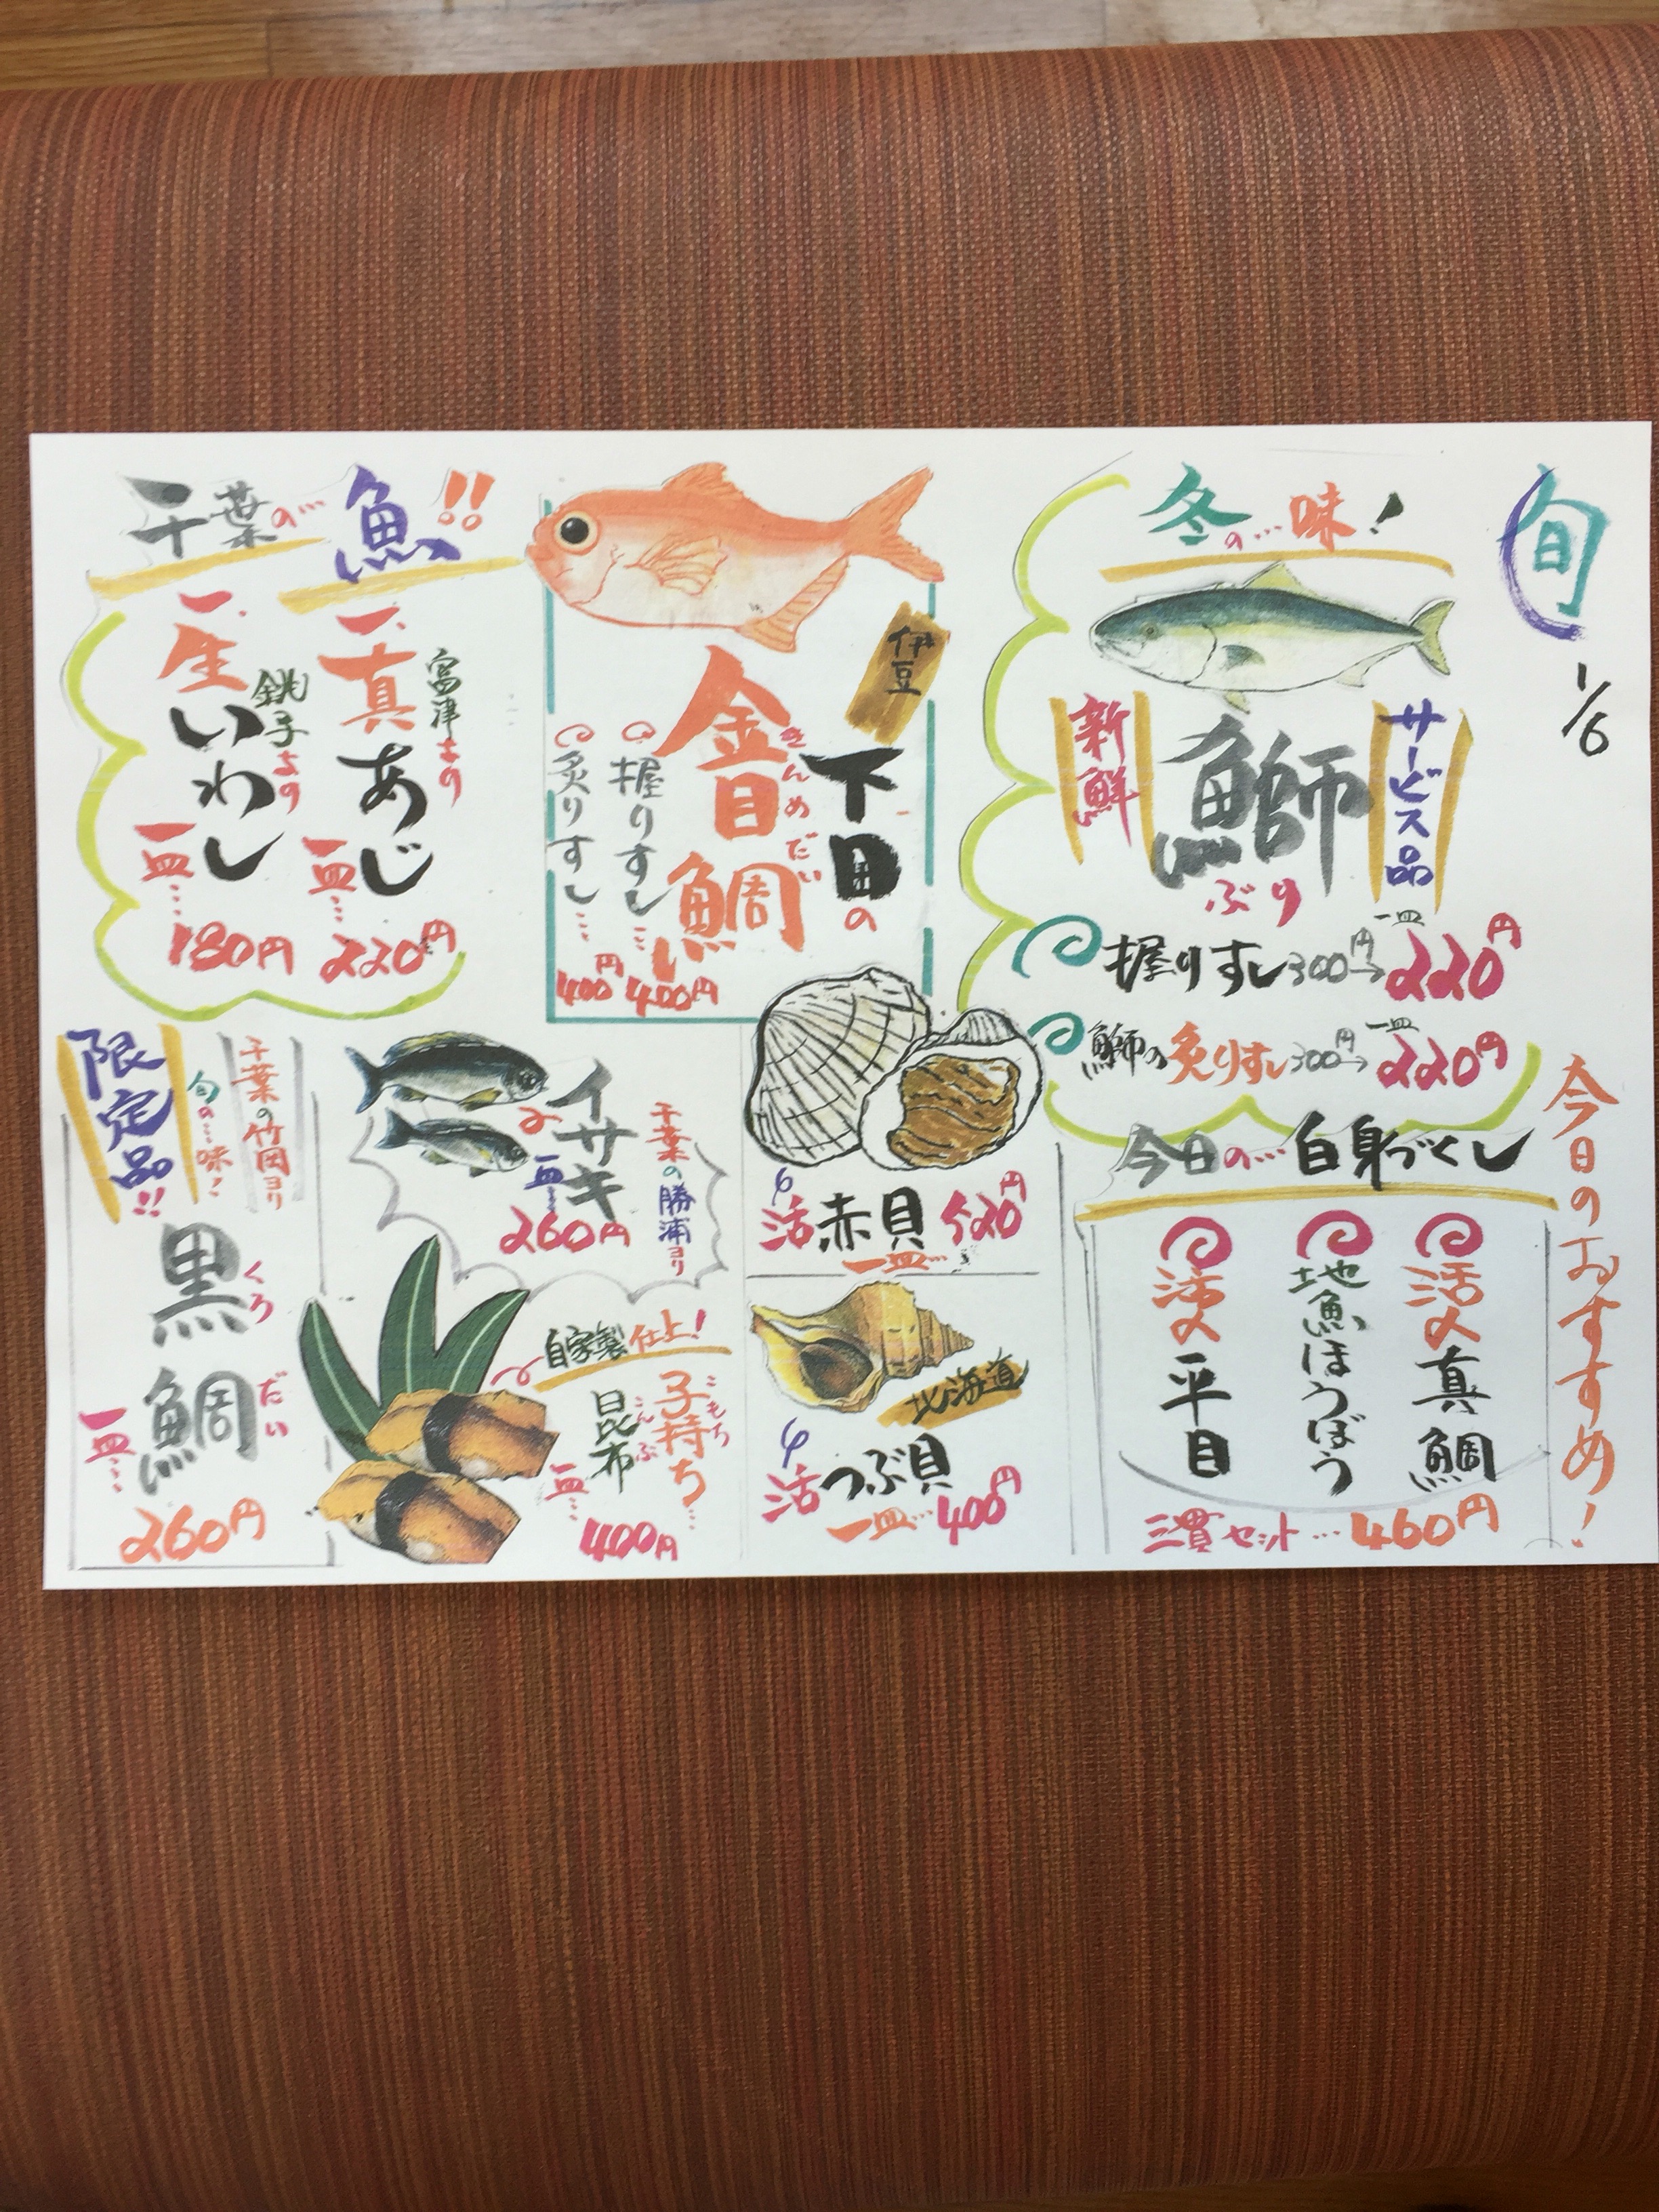 旬
1/6
今日のおすすめ!
冬の…味!
サービス品
鰤
ぶり
新鮮
握りすし300円→一皿220円
鰤の炙りすし300円→一皿220円
今日の…白身づくし
活〆真鯛
地魚ほうぼう
活〆平目
三貫セット…460円
伊豆
下田の
金目鯛
きんめだい
握りすし…400円
炙りすし…400円
活赤貝
一皿…520円
北海道
活つぶ貝
一皿…400円
千葉の…魚!!
富津よりの
一、真あじ
一皿…220円
銚子よりの
一、生いわし
一皿…180円
千葉の勝浦ヨリ
イサキ
一皿
260円
自家製仕上!
子持ち…
こもち
昆布
こんぶ
一皿…400円
千葉の竹岡ヨリ
旬の…味!
限定品!!
黒鯛
くろだい
一皿…
260円